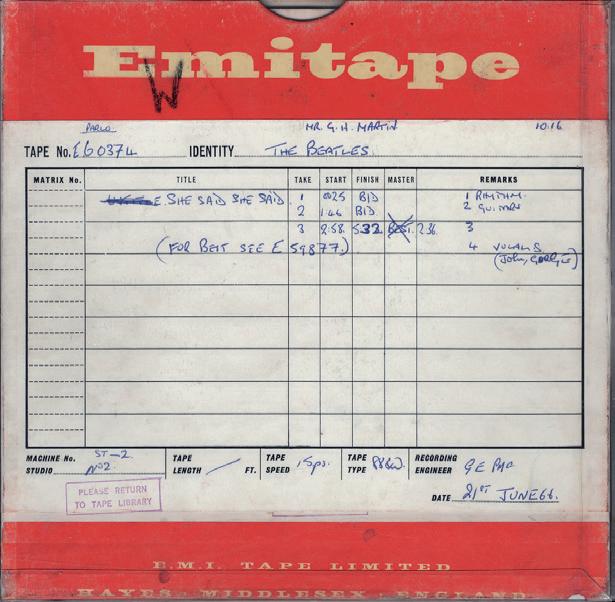 Emitape
W
PARLO MR. G. H. MARTIN 10.16
TAPE No. E60374 IDENTITY THE BEATLES
MATRIX No. TITLE TAKE START FINISH MASTER REMARKS
SHE SAID SHE SAID. 1 0025 BID 1 RHYTHM.
2 1.46 BID. 2 GUITARS
3 2.58. 5.32 BEST. 2.36. 3
(FOR BEST SEE E 59877) 4 VOCALS
(John, GEORGE)
MACHINE No. ST-2
STUDIO No2.
TAPE LENGTH FT.
TAPE SPEED 15ps.
TAPE TYPE
RECORDING ENGINEER GE
DATE 21ST JUNE 66.
PLEASE RETURN
TO TAPE LIBRARY
E.M.I. TAPE LIMITED
HAYES · MIDDLESEX · ENGLAND